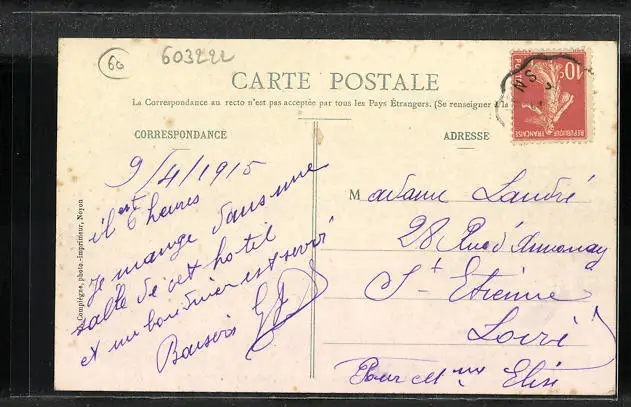 60
603222
CARTE POSTALE
La Correspondance au recto n'est pas acceptée par tous les Pays Étrangers. (Se renseigner à la
CORRESPONDANCE
ADRESSE
10c
POSTES
REPUBLIQUE FRANÇAISE
9/4/1915
il est 6 heures
Je mange dans une
salle de cet hotel
et un bon diner est servi
Madame Landré
28 Rue d'Annonay
St Etienne
Loire
Pour Mme Elise
Compiègne, photo.-imprimeur, Noyon